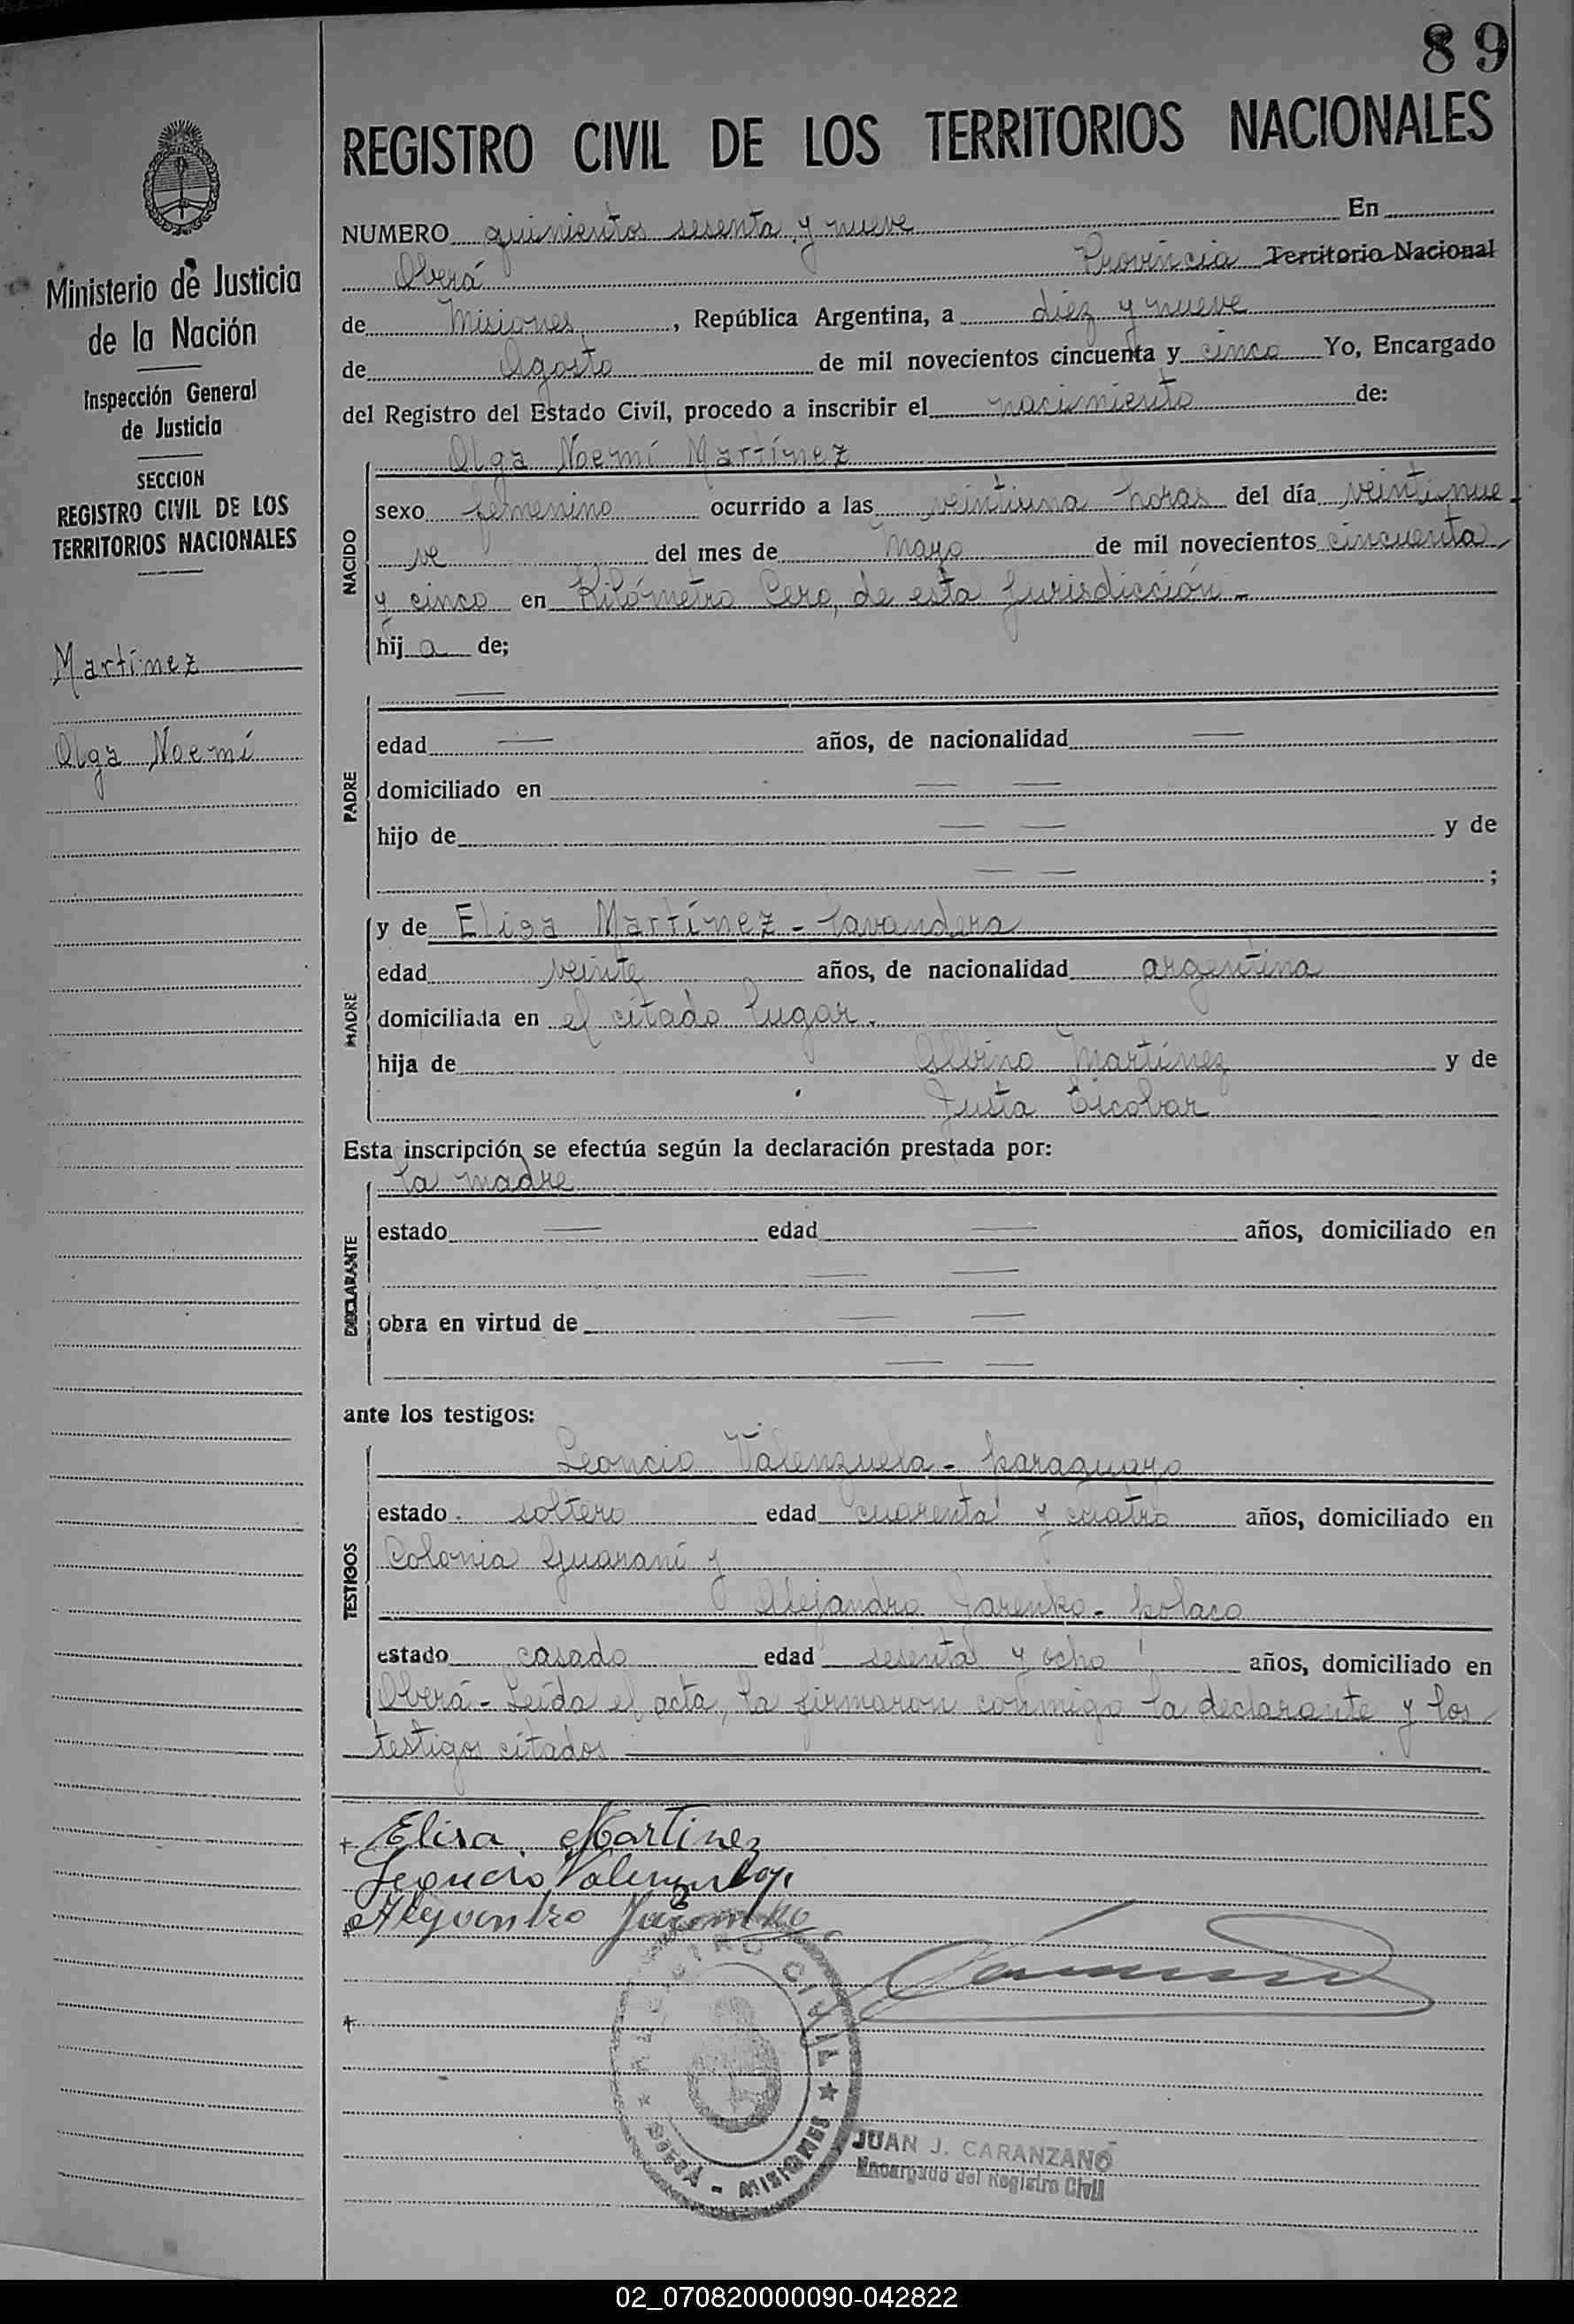 89
REGISTRO CIVIL DE LOS TERRITORIOS NACIONALES
Ministerio de Justicia
de la Nación
Inspección General
de Justicia
SECCION
REGISTRO CIVIL DE LOS
TERRITORIOS NACIONALES
Martínez
Olga Noemí
NUMERO quinientos sesenta y nueve En
Oberá Provincia Territorio Nacional
de Misiones, República Argentina, a diez y nueve
de Agosto de mil novecientos cincuenta y cinco Yo, Encargado
del Registro del Estado Civil, procedo a inscribir el nacimiento de:
NACIDO
Olga Noemí Martínez
sexo femenino ocurrido a las veintiuna horas del día veintinue-
ve del mes de Mayo de mil novecientos cincuenta
y cinco en Kilómetro Cero, de esta jurisdicción -
hij a de;
PADRE
edad — años, de nacionalidad —
domiciliado en — —
hijo de — — y de
— — ;
MADRE
y de Elisa Martínez - lavandera
edad veinte años, de nacionalidad argentina
domiciliada en el citado lugar.
hija de Albino Martínez y de
Justa Escobar
Esta inscripción se efectúa según la declaración prestada por:
DECLARANTE
la madre
estado — edad — años, domiciliado en
— —
obra en virtud de — —
— —
ante los testigos:
TESTIGOS
Leoncio Valenzuela - paraguayo
estado soltero edad cuarenta y cuatro años, domiciliado en
Colonia Guaraní y
Alejandro Jarenko - polaco
estado casado edad sesenta y ocho años, domiciliado en
Oberá - Leída el acta, la firmaron conmigo la declarante y los
testigos citados
+ Elisa Martinez
Leoncio Valenzuela
Alejandro
REGISTRO CIVIL
OBERÁ - MISIONES
JUAN J. CARANZANO
Encargado del Registro Civil
02_070820000090-042822